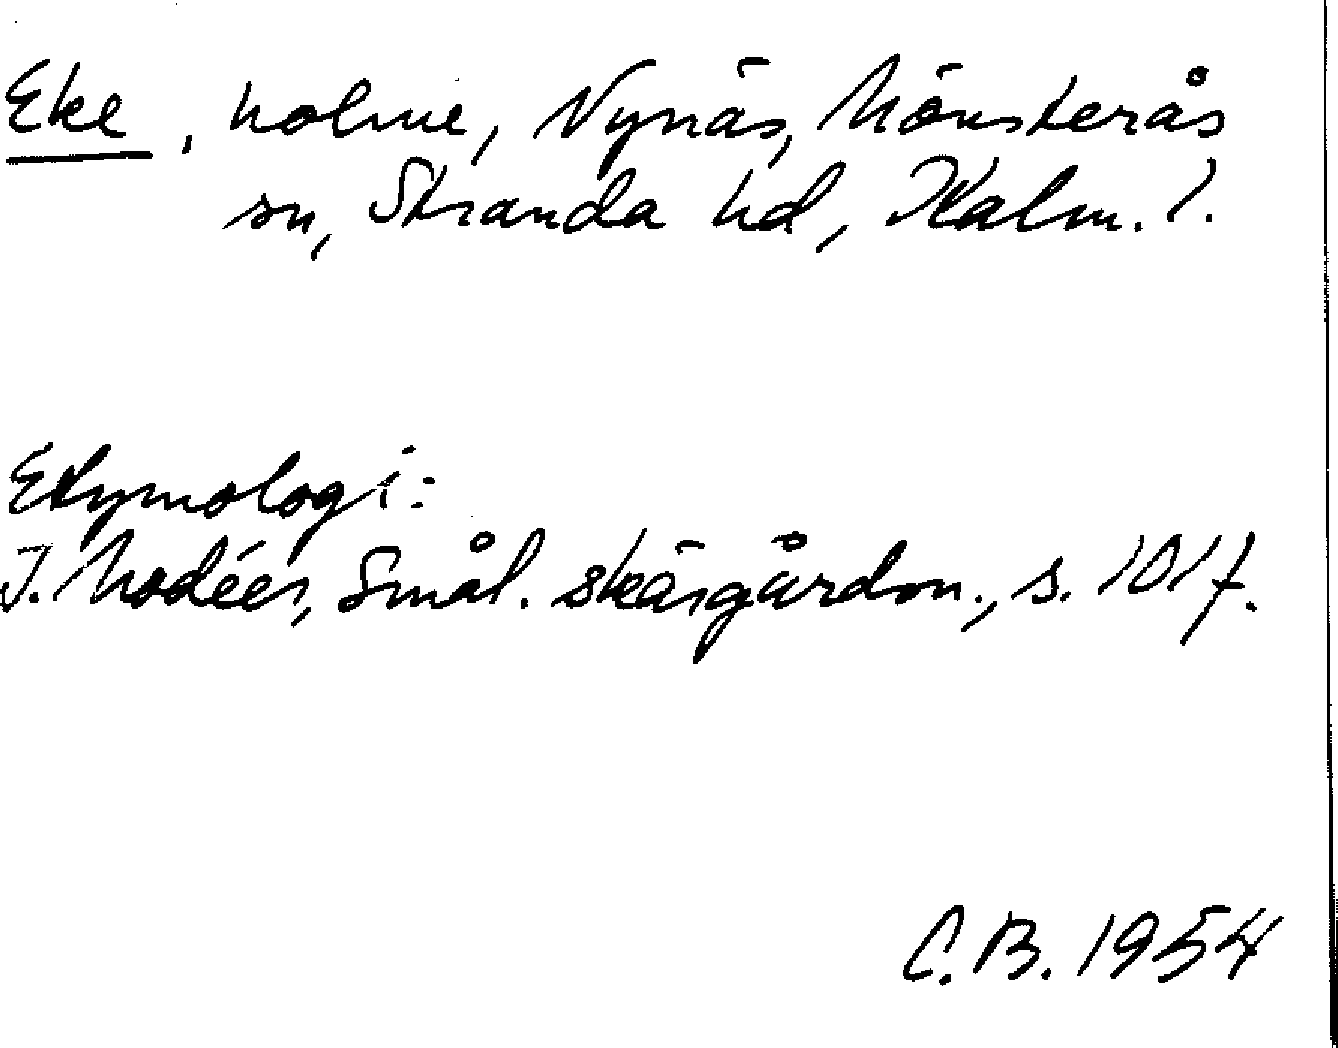 Eke, holme, Nynäs, Mönsterås
sn, Stranda hd, Kalm. l.
Etymologi:
I. Modéer, Smål. skärgårdsn., s. 101 f.
C.B. 1954